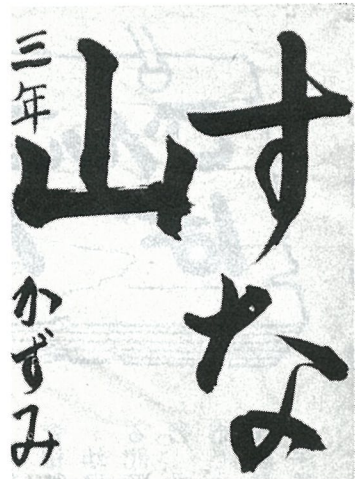 すな
山
三年 かずみ